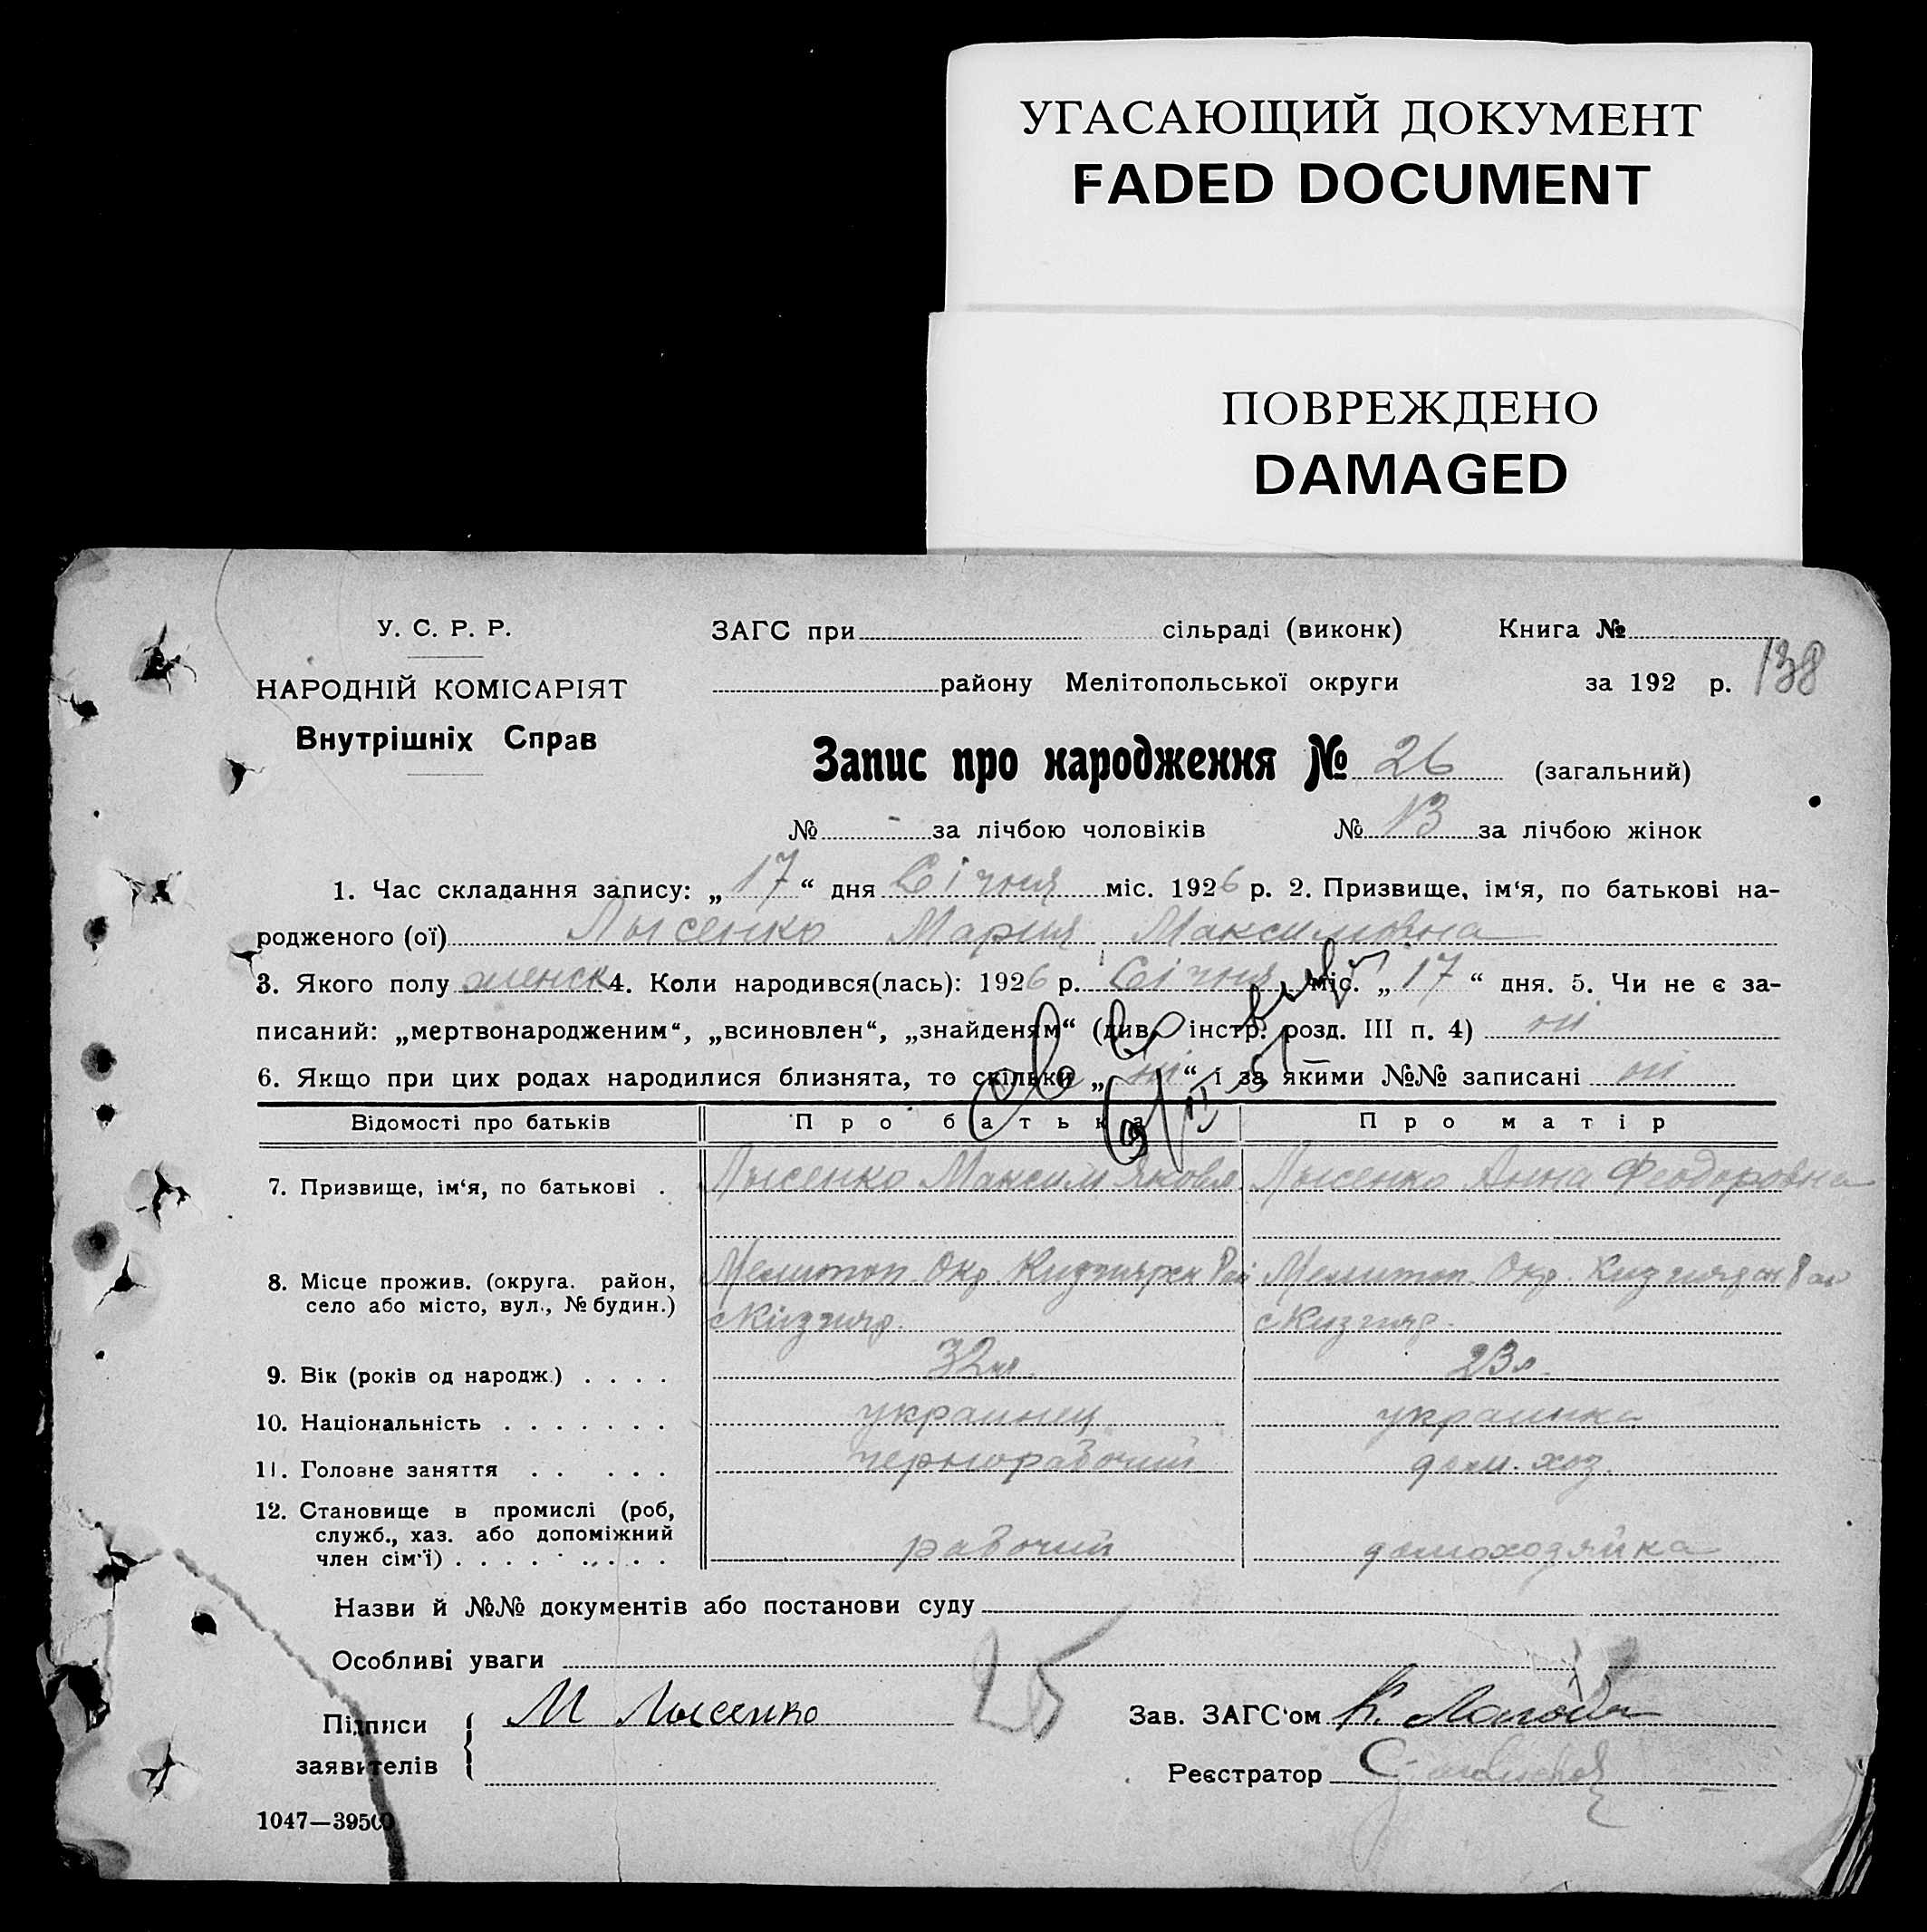 УГАСАЮЩИЙ ДОКУМЕНТ
FADED DOCUMENT
ПОВРЕЖДЕНО
DAMAGED
У. С. Р. Р.
НАРОДНІЙ КОМІСАРІЯТ
Внутрішніх Справ
ЗАГС при сільраді (виконк) Книга №
району Мелітопольської округи за 192 р. 138
Запис про народження № 26 (загальний)
№ - за лічбою чоловіків № 13 за лічбою жінок
1. Час складання запису: „17“ дня Січня міс. 1926 р. 2. Призвище, ім‘я, по батькові на-
родженого (ої) Лысенко Мария Максимовна
3. Якого полу женск 4. Коли народився(лась): 1926 р. Січня міс. „17“ дня. 5. Чи не є за-
писаний: „мертвонародженим“, „всиновлен“, „знайденям“ (див. інстр. розд. III п. 4) ні
6. Якщо при цих родах народилися близнята, то скільки „ні“ і за якими №№ записані ні
Відомості про батьків Про батька Про матір
7. Призвище, ім‘я, по батькові . Лысенко Максим Яковл Лысенко Анна Феодоровна
8. Місце прожив. (округа. район, Мелитоп. Окр. Кизиярск Рай Мелитоп. Окр. Кизиярск Рай
село або місто, вул., № будин.) с Кизияр. с Кизияр.
9. Вік (років од народж.) . . . . 32 л. 23 л.
10. Національність . . . . . . . украинец украинка
11. Головне заняття . . . . . чернорабочий дом. хоз.
12. Становище в промислі (роб,
служб., хаз. або допоміжний
член сім‘ї) . . . . . . . . . рабочий домохозяйка
Назви й №№ документів або постанови суду
Особливі уваги
25
Підписи М Лысенко Зав. ЗАГС‘ом К.
заявителів Реєстратор
1047—39500